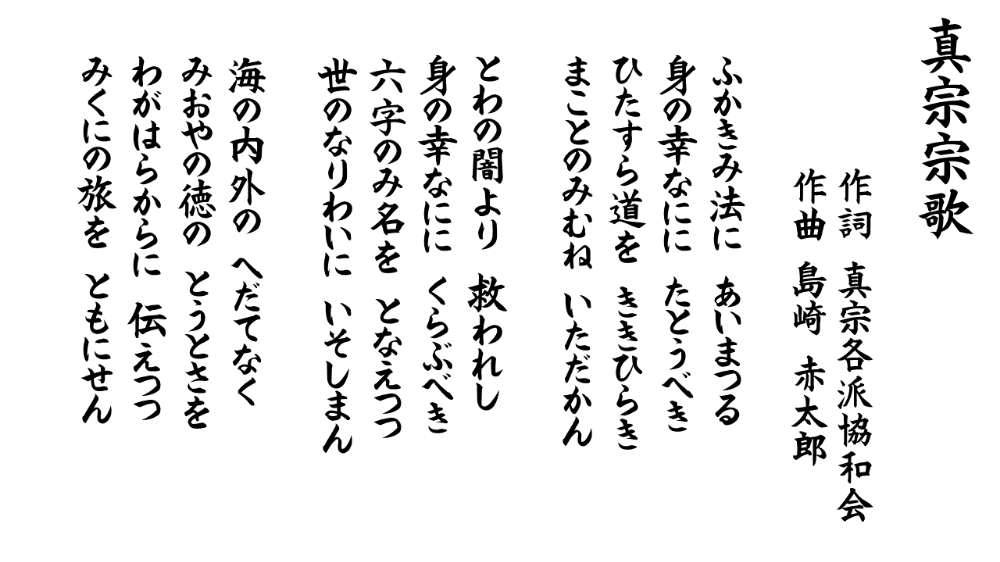 真宗宗歌
作詞 真宗各派協和会
作曲 島崎 赤太郎
ふかきみ法に あいまつる
身の幸なにに たとうべき
ひたすら道を ききひらき
まことのみむね いただかん
とわの闇より 救われし
身の幸なにに くらぶべき
六字のみ名を となえつつ
世のなりわいに いそしまん
海の内外の へだてなく
みおやの徳の とうとさを
わがはらからに 伝えつつ
みくにの旅を ともにせん